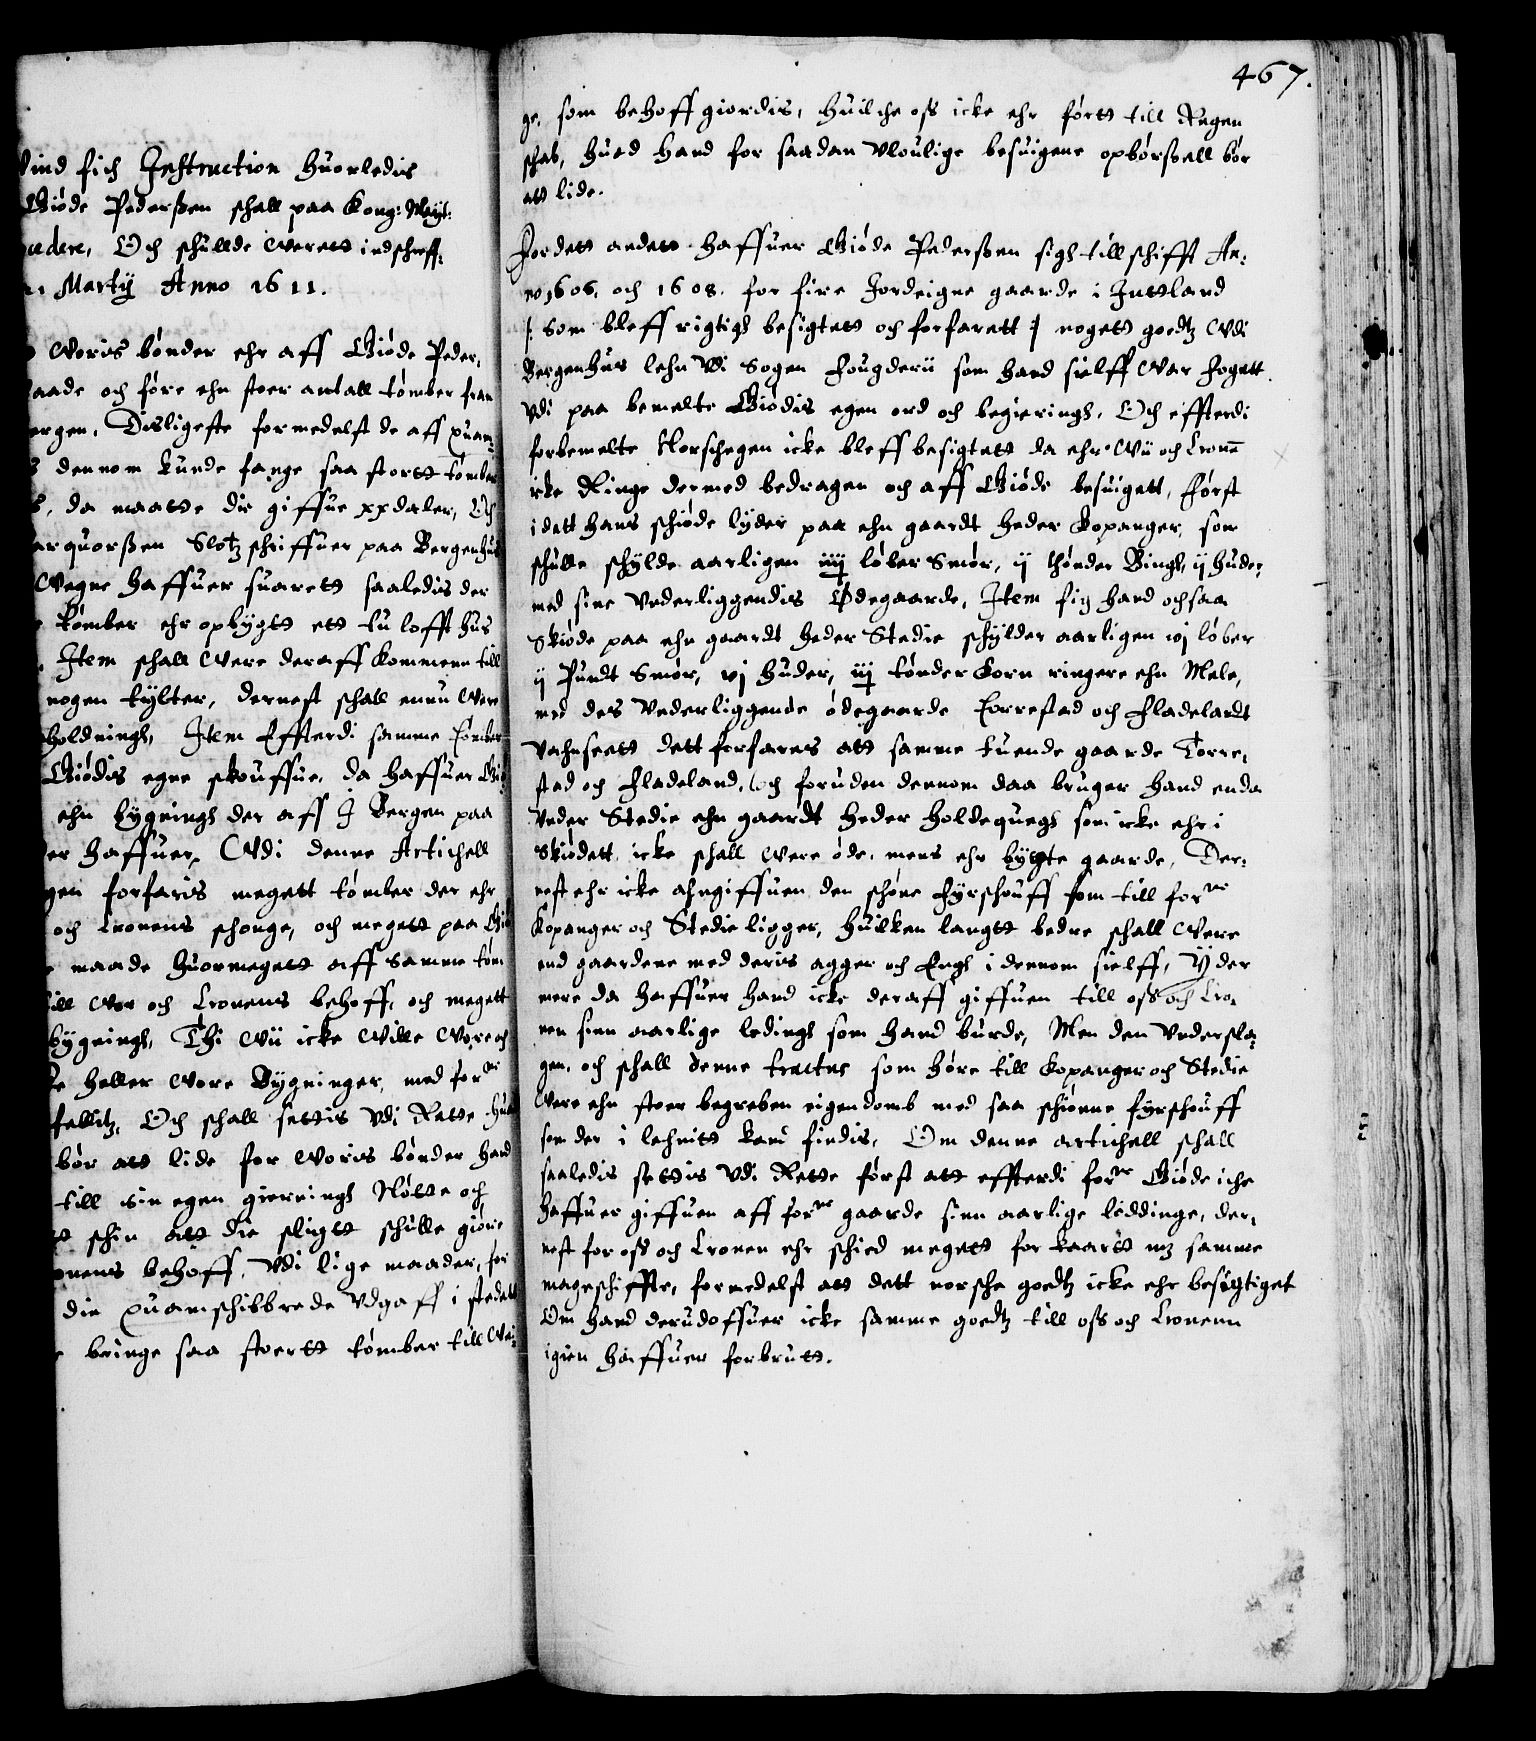 ind fich Instruction Huorledis
Giøde Pederßen schall paa Kong: Mayt:
Och schullde Werett indschreff:
Martij Anno 1611.
Woris bønder ehr aff Giøde Peder,
aade och føre ehn stoer antall tømber fram
ergen, Disligeste formedelst de aff
dennom kunde fange saa stortt tømber
da maatte die giffue xx daler, Och
arquorßen Slotz schriffuer paa Bergenhus
Wegne haffuer suarett saaledis der
tømber ehr opbygtt ett tu lofft hus
Item schall Were deraff kommenn till
nogen tylter, dernest schall ennu Were
holdningh, Item Effterdi samme tømber
Giødis egne skouffue, da haffuer
ehn bygningh der aff I Bergen paa
er haffuer, Vdi denne Artichell
gen forfaris megett tømber der ehr
och Cronens schouge, och megett paa
maade huormegett aff samme tøm
till Wor och Cronens behoff, och megett
bygningh, Thi Wii icke Wille Wore och
heller Wore Bygninger, med forne
fellitz, Och schall settis Vdi Rette
bør att lide for Woris bønder hand
till sin egen giernings Nøtte och
schin att die sligtt schulle giøre
onens behoff, Vdi lige maader, for
die quamschibbrede Vdgaff i stedett
bringe saa stoertt tømber till
467.
ge, som behoff giordis, huilche oss icke ehr førtt till Regen
schab, huad hand for saadan Vloulige besuigene opbørßell bør
att lide.
For dett andett haffuer Giøde Pederßen sigh till schifft An:
no 1606, och 1608. for fire Jordeigne gaarde i Juttland
/: Som bleff rigtigh besigtett och forfarett :/ nogett goedtz Vdi
Bergenhus lehn Vdi Sogen fougderii som hand sielff War fogett
Vdi paa bemelte Giødis egen ord och begieringh, Och effterdi
forbemelte Norschegen icke bleff besigtett da ehr Wii och Cronn
icke Ringe dermed bedragen och aff Giøde besuigett, først
i dett hans schiøde lyder paa ehn gaardt heder Kopanger, som
schulle schylde aarligen iiij løber Smør, ij thønder Bingh, ij huder,
med sine Vnderliggendis Ødegaarde, Item fig hand ochsaa
Skiøde paa ehn gaardt heder Stedie schylder aarligen vj løber
ij Pundt Smør, vj huder, iij tønder Korn ringere ehn Mele,
med des Vnderliggende ødegaarde Torrestad och Fladelandt
Vahnseett dett forfares att samme tuende gaarde Torre,
stad och Fladeland, och foruden dennom daa bruger hand enda
Vnder Stedie ehn gaardt heder Holdequegh som icke ehr i
Skiødett, icke schall Were øde, mens ehr bygte gaarde, Der,
nest ehr icke ahngiffuen den schøne Fyrschouff som till forne
Kopanger och Stedie ligger, huilken langtt bedre schall Were
end gaardene med deris agger och Engh i dennom sielff, Yder
mere da haffuer hand icke deraff giffuen till oss och Cro,
nen sinn aarlige ledingh som hand burde, Men den Vndersla,
gen, och schall denne tractus som høre till Kopanger och Stedie
Were ehn stoer begreben eigendomb med saa schiønne fyrschouff
som der i lehnitt kand findis, Om denne artichell schall
saaledis settis Vdi Rette først att effterdi forne Giøde iche
haffuer giffuen aff forne gaarde sinn aarlige leddinge, der,
nest for oss och Cronen ehr schied megett for kaartt mz samme
mageschiffte, formedelst att dett norsche goedtz icke ehr besigtiget
Om hand derudoffuer icke samme goedtz till oss och Cronenn
igien haffuer forbrutt.